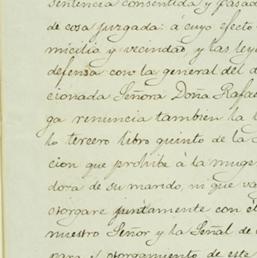 sentencia consentida y pasad
de cosa juzgada: á cuyo efecto
micilio y vecindad, y las leye
defensa con la general del d
cionada Señora Doña Rafae
ga renuncia tambien la l
lo tercero libro quinto de la
cion que prohibe á la muge
dora de su marido, ni que va
otorgare juntamente con él
nuestro Señor y la Señal de
para el otorgamiento de este